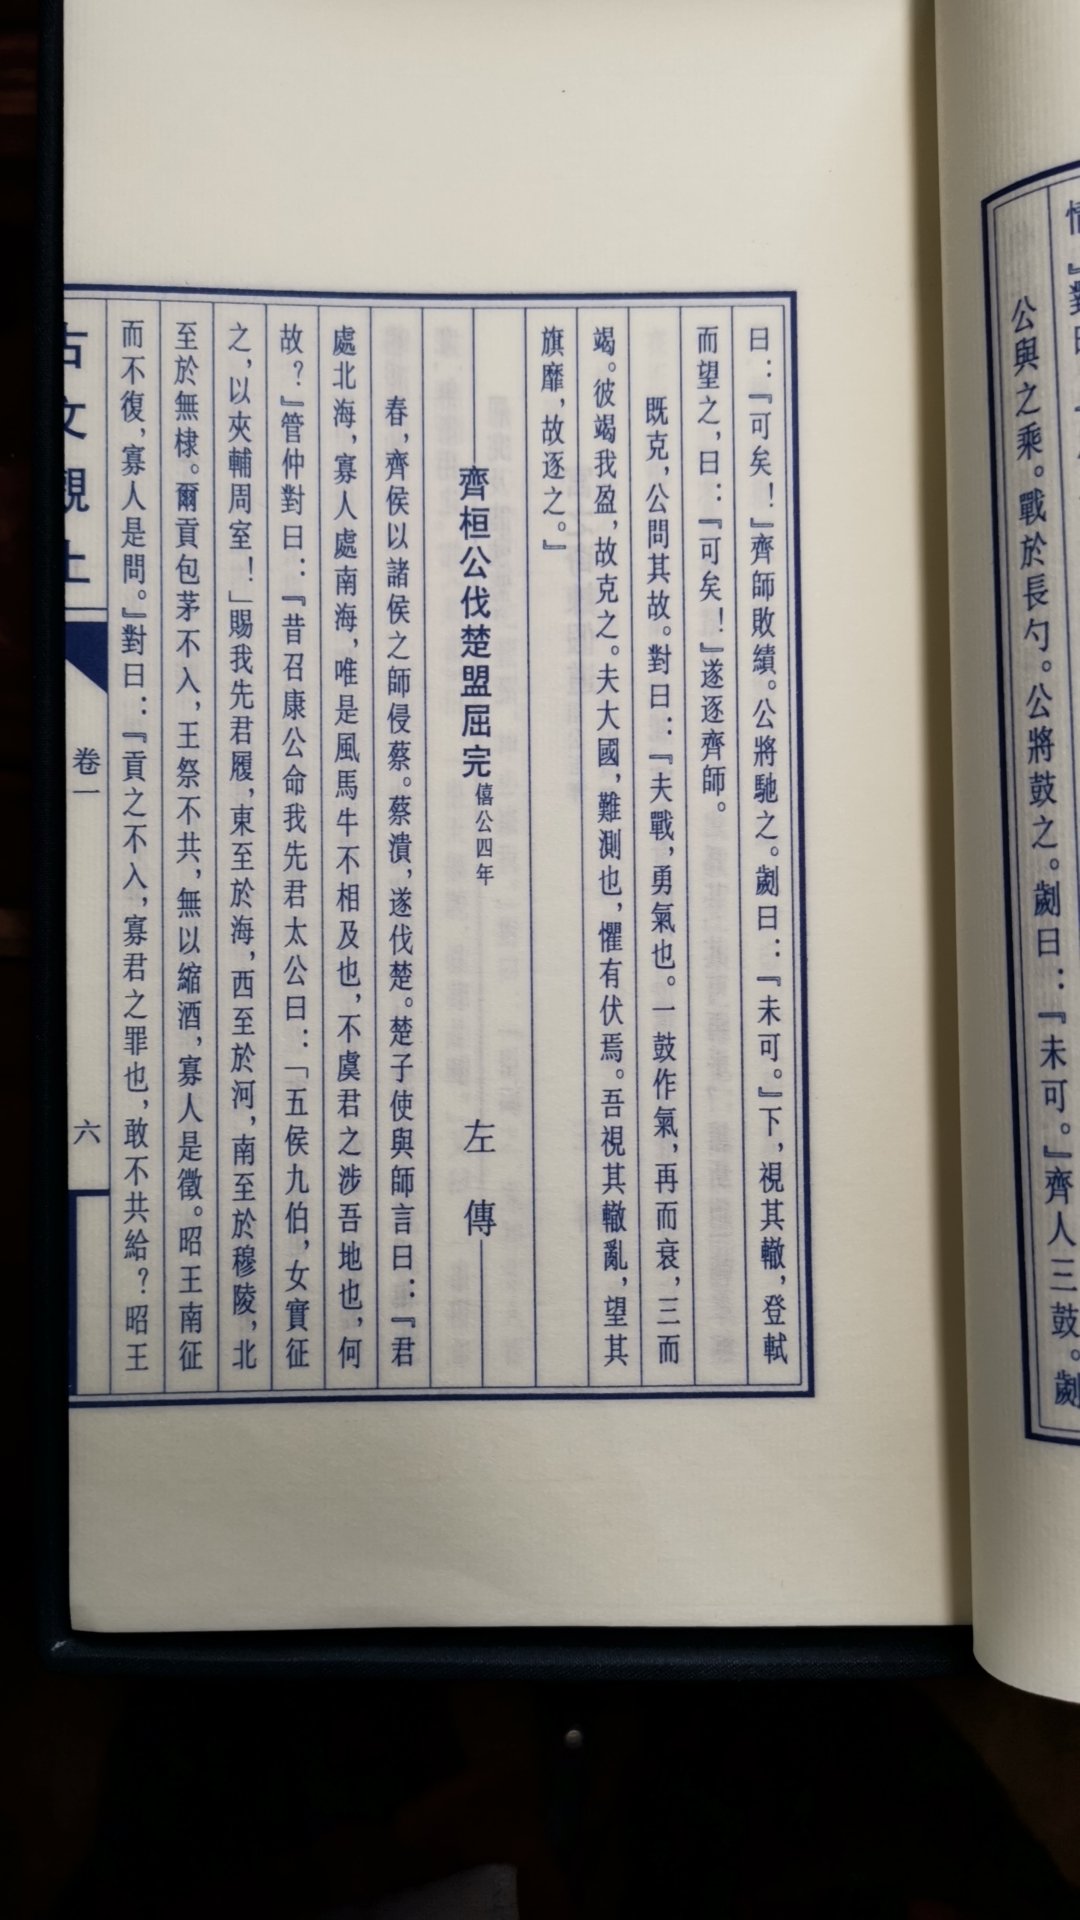 公與之乘。戰於長勺。公將鼓之。劌曰：『未可。』齊人三鼓。劌
曰：『可矣！』齊師敗績。公將馳之。劌曰：『未可。』下，視其轍，登軾
而望之，曰：『可矣！』遂逐齊師。
既克，公問其故。對曰：『夫戰，勇氣也。一鼓作氣，再而衰，三而
竭。彼竭我盈，故克之。夫大國，難測也，懼有伏焉。吾視其轍亂，望其
旗靡，故逐之。』
齊桓公伐楚盟屈完 僖公四年 左傳
春，齊侯以諸侯之師侵蔡。蔡潰，遂伐楚。楚子使與師言曰：『君
處北海，寡人處南海，唯是風馬牛不相及也，不虞君之涉吾地也，何
故？』管仲對曰：『昔召康公命我先君太公曰：「五侯九伯，女實征
之，以夾輔周室！」賜我先君履，東至於海，西至於河，南至於穆陵，北
至於無棣。爾貢包茅不入，王祭不共，無以縮酒，寡人是徵。昭王南征
而不復，寡人是問。』對曰：『貢之不入，寡君之罪也，敢不共給？昭王
古文觀止 卷一 六